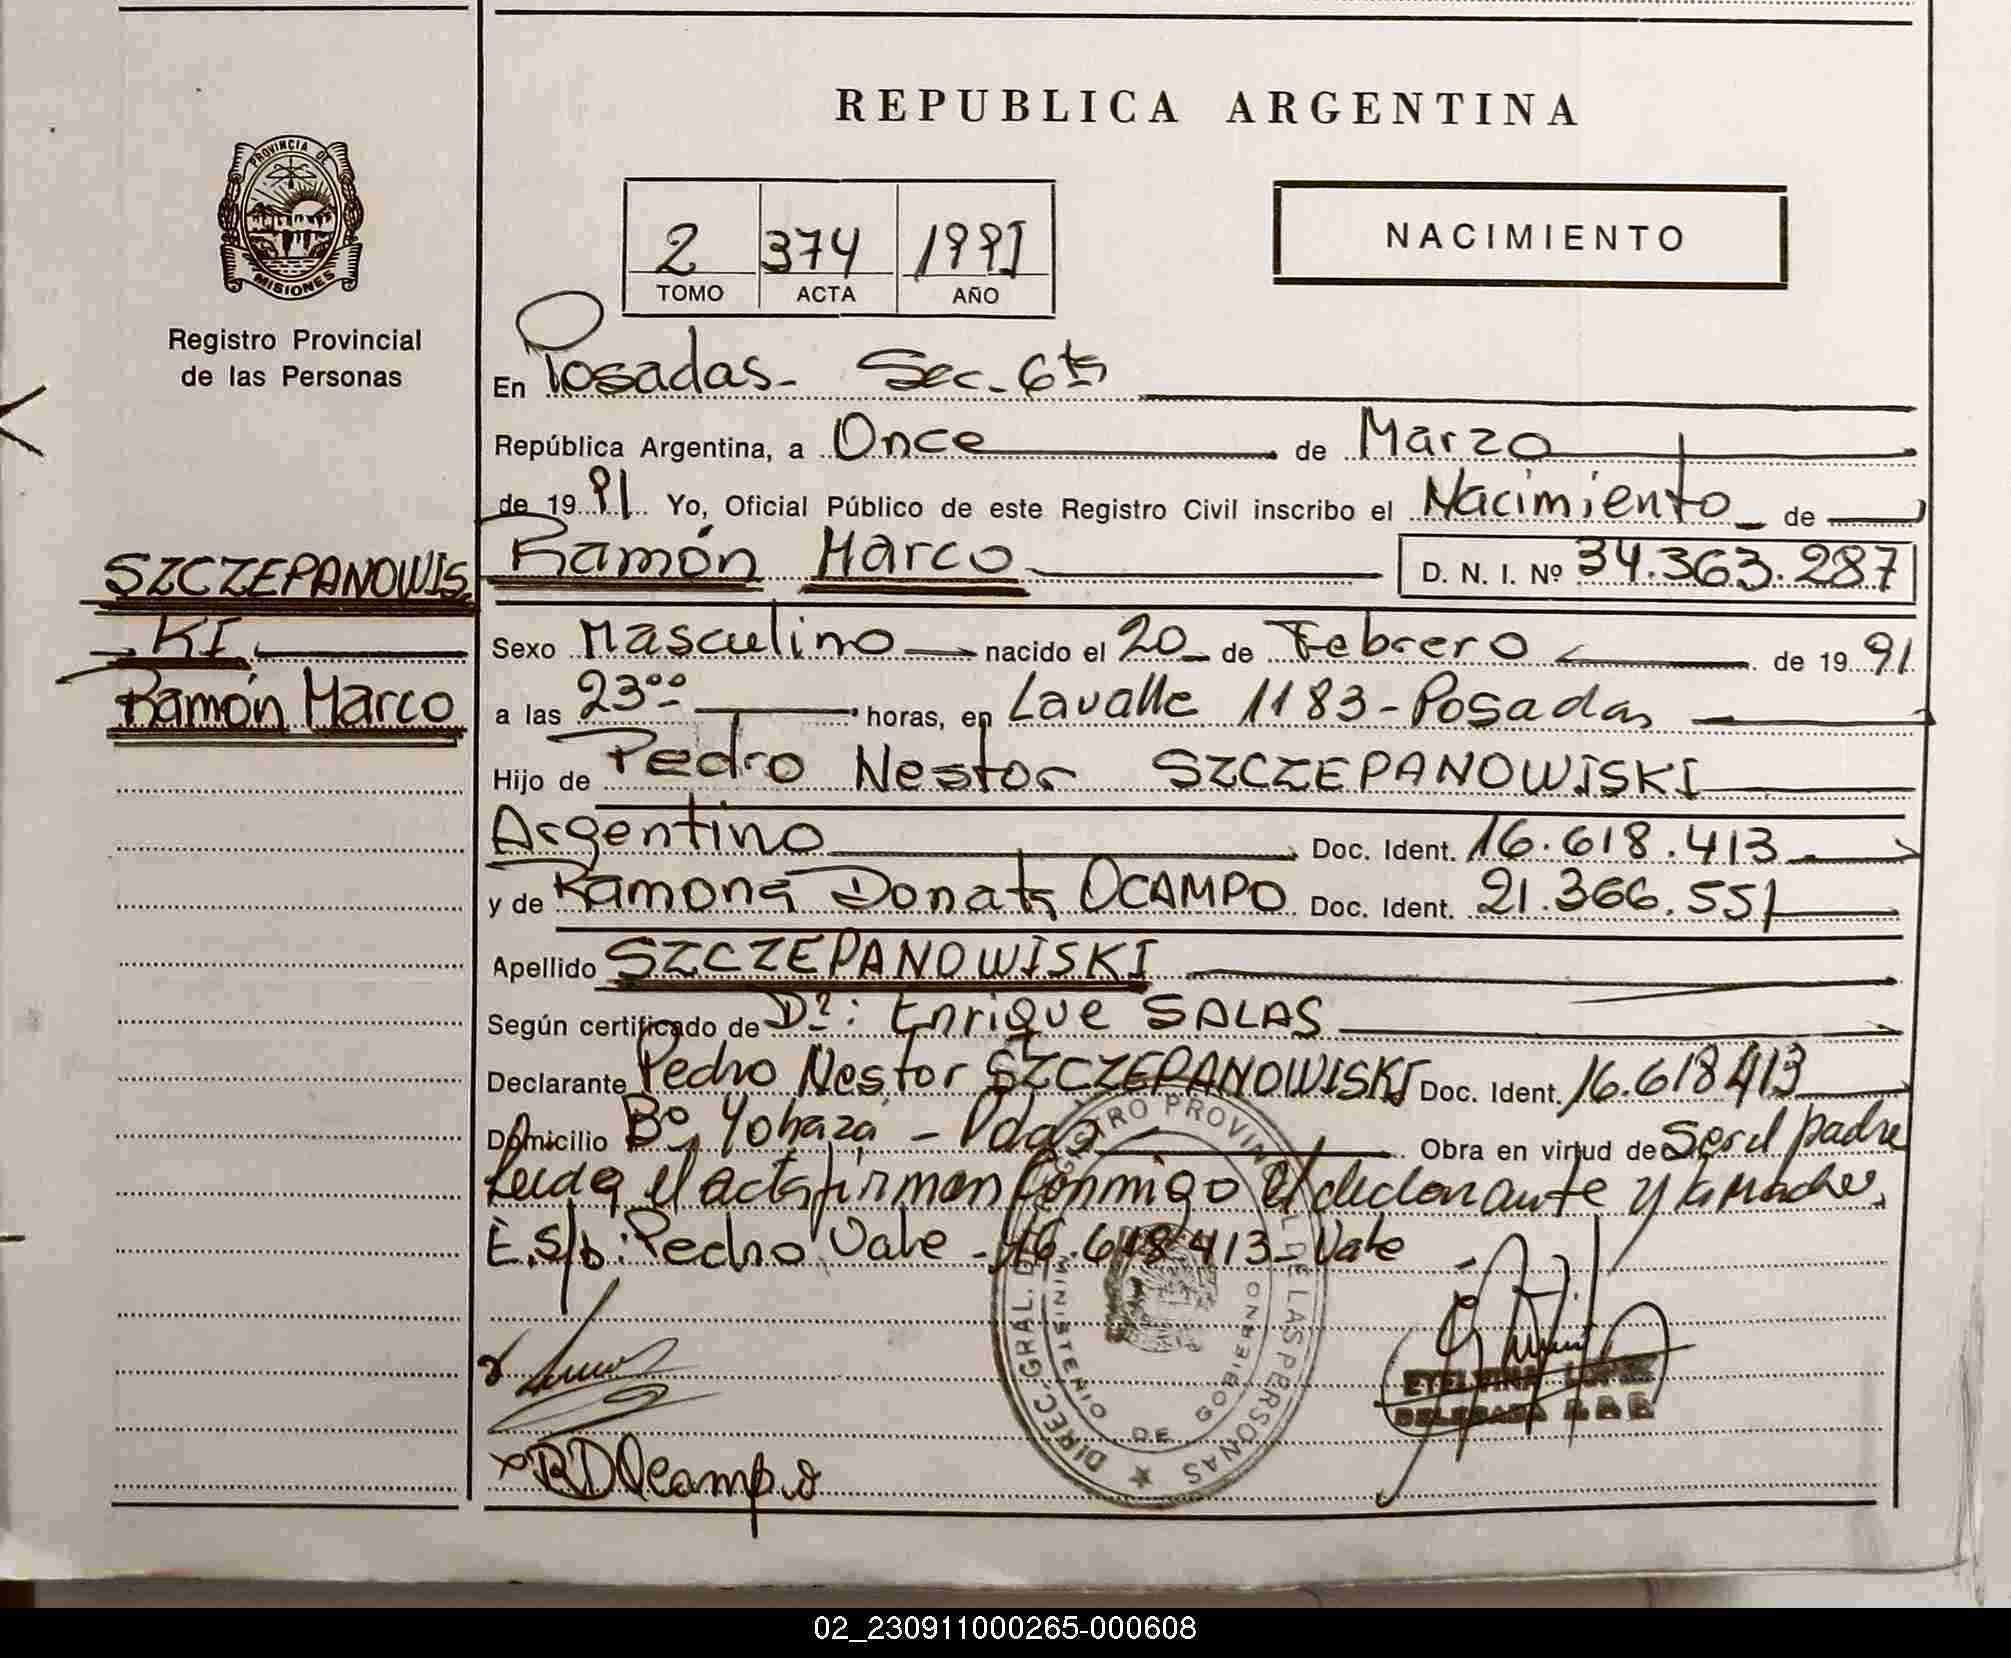 REPUBLICA ARGENTINA
PROVINCIA DE
MISIONES
Registro Provincial
de las Personas
2 374 1991
TOMO ACTA AÑO
NACIMIENTO
En Posadas - Sec. 6ta
República Argentina, a Once de Marzo
de 1991 Yo, Oficial Público de este Registro Civil inscribo el Nacimiento de
SZCZEPANOWIS
KI
Ramón Marco
Ramón Marco D. N. I. Nº 34.363.287
Sexo Masculino nacido el 20 de Febrero de 1991
a las 23⁰⁰ horas, en Lavalle 1183 - Posadas
Hijo de Pedro Nestor SZCZEPANOWISKI
Argentino Doc. Ident. 16.618.413
y de Ramona Donata OCAMPO Doc. Ident. 21.366.551
Apellido SZCZEPANOWISKI
Según certificado de Dr: Enrique SALAS
Declarante Pedro Nestor SZCZEPANOWISKI Doc. Ident. 16.618413
Domicilio Bº Yohasá - Pdas Obra en virtud de Ser el padre
Leida el acta firman conmigo el declarante y la madre.
E.S/b: Pedro Vale - 16.618413 - Vale
DIREC. GRAL. DE REGISTRO PROVINCIAL DE LAS PERSONAS
MINISTERIO DE GOBIERNO
RDOcampo
02_230911000265-000608